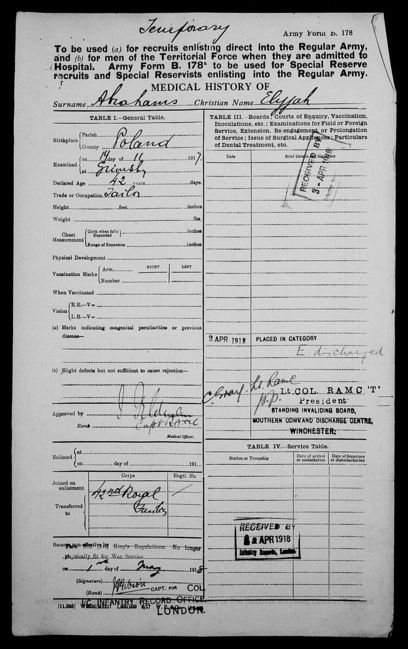 Temporary
Army Form B. 178
To be used (a) for recruits enlisting direct into the Regular Army,
and (b) for men of the Territorial Force when they are admitted to
Hospital. Army Form B. 178A to be used for Special Reserve
recruits and Special Reservists enlisting into the Regular Army.
MEDICAL HISTORY OF
Surname Abrahams Christian Name Elijah
TABLE I.—General Table.
Birthplace Parish
County Poland
Examined on 14 day of 11 1917.
at Grimsby
Declared Age 42 years days.
Trade or Occupation Tailor
Height feet inches
Weight lbs.
Chest Measurement Girth when fully Expanded inches
Range of Expansion inches
Physical Development
Vaccination Marks Arm RIGHT LEFT
Number
When Vaccinated
Vision R.E.—V=
L.E.—V=
(a) Marks indicating congenital peculiarities or previous
disease—
(b) Slight defects but not sufficient to cause rejection—
Approved by
Rank Capt RAMC
Medical Officer.
Enlisted at
on day of 191
Corps Regtl. No.
Joined on enlistment 42nd Royal
Fusiliers
Transferred to
King's Regulations. No longer
physically fit for War Service
on 1st day of May 1918
(Signature)
(Rank) CAPT. FOR COL.
I/C INFANTRY RECORD OFFICE,
LONDON.
TABLE III.—Boards; Courts of Enquiry, Vaccination,
Inoculations, etc.; Examinations for Field or Foreign
Service, Extension, Re-engagement, or Prolongation
of Service; Issue of Surgical Appliances; Particulars
of Dental Treatment, etc.
Date Brief Details
RECEIVED BY
3-APR 1918
2 APR 1918 PLACED IN CATEGORY
E discharged
Lt. COL. RAMC 'T'
President
STANDING INVALIDING BOARD,
SOUTHERN COMMAND DISCHARGE CENTRE,
WINCHESTER.
TABLE IV.—Service Table.
Station or Troopship Date of arrival or embarkation Date of departure or disembarkation
RECEIVED BY
APR 1918
Infantry Records, London.